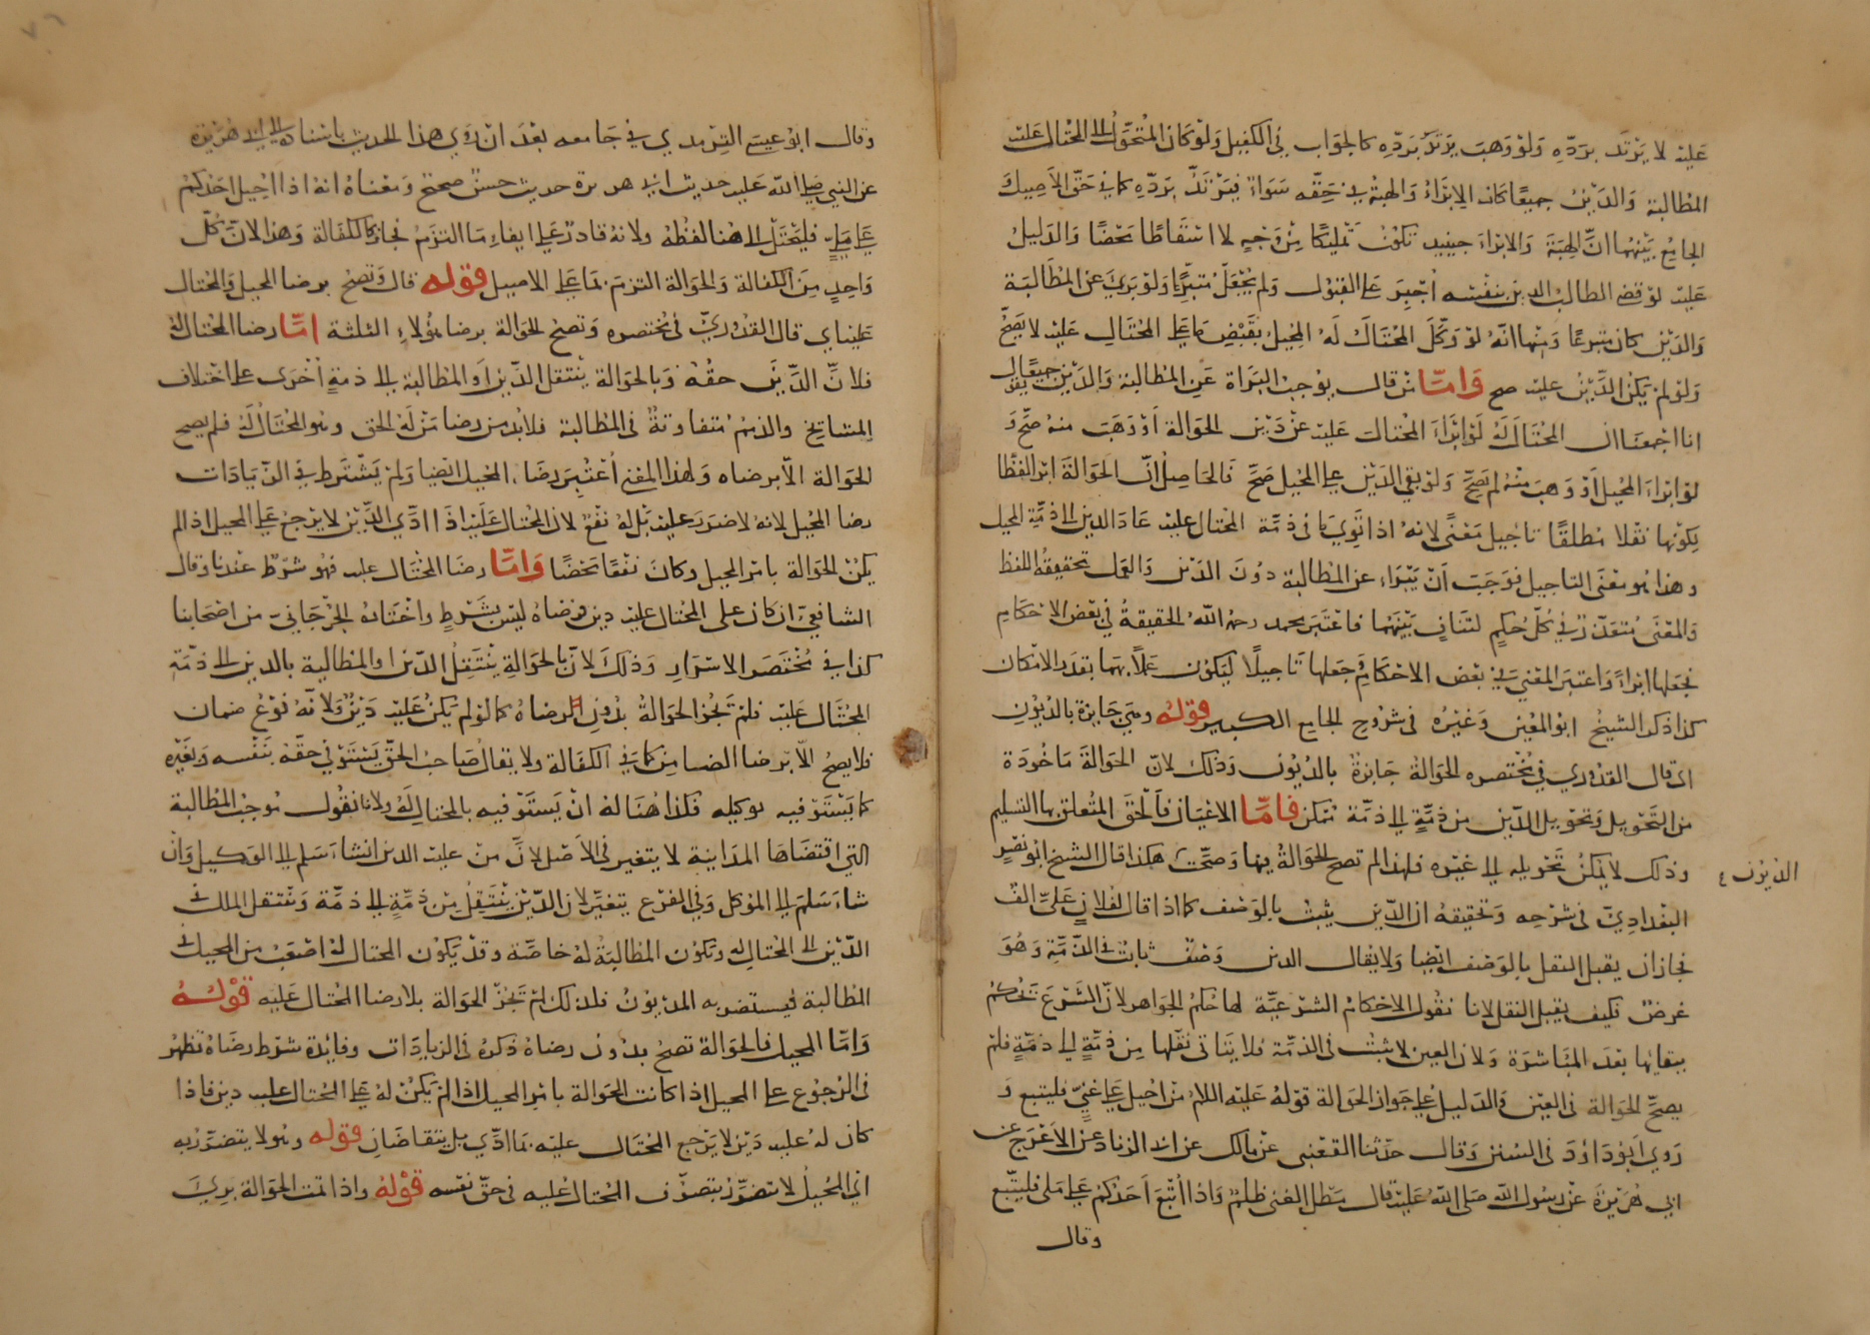 عليه لا يرتد بردّه ولو وهب يرتد بردّه كالجواب في الكفيل ولو كان المتحول الى المحتال عليه
المطالبة والدين جميعًا كان الابراء والهبة في حقه سواء فيرتد بردّه كما في حق الاصيل
الجامع بينهما انّ الهبة والابراء حينئذ تكون تمليكًا من وجه لا اسقاطًا محضًا والدليل
عليه لو قضى المطالب الدين بنفسه أجبر على القبول ولم يجعل متبرّعا ولو برئ عن المطالبة
والدين كان متبرعًا ومنها انه لو وكّل المحتال له المحيل بقبض ما على المحتال عليه لا يصحّ
ولو لم يكن الدين عليه صح وامّا من قال يوجب البراة عن المطالبة والدين جميعًا
انا اجمعنا ان المحتال له لو ابرأ المحتال عليه عن دين الحوالة أو وهب منه صحّ و
لو ابراء المحيل أو وهب منه لم يصحّ ولو بقي الدين على المحيل صحّ فالحاصل انّ الحوالة ابرا لفظا
لكونها نقلا مطلقًا تاجيل معنًى لانه اذا توي ما في ذمّة المحتال عليه عاد الدين الى ذمّة المحيل
وهذا هو معنى التاجيل فوجب أن يتبراء عن المطالبة دون الدين والعمل بحقيقة اللفظ
والمعنى متعذّر في كلّ حكم لتنافٍ بينهما فاعتبر محمد رحمه الله الحقيقة في بعض الاحكام
فجعلها ابراءً واعتبر المعنى في بعض الاحكام وجعلها تاجيلًا ليكون عملًا بهما بقدر الامكان
كذا ذكر الشيخ ابو المعين وغيره في شروح الجامع الكبير قوله وهي جايزة بالديون
اي قال القدوري في مختصره الحوالة جايزة بالديون وذلك لانّ الحوالة ماخوذة
من التحويل وتحويل الدّين من ذمّةٍ الى ذمّة ممكن فامّا الاعيان فالحق المتعلق بها التسليم
وذلك لا يمكن تحويله الى غيره فلهذا لم تصح الحوالة بها وصحّت هكذا قال الشيخ ابو نصر
الديون
البغداديّ في شرحه وتحقيقه ان الدّين يثبت بالوصف كما اذا قال لفلانٍ عليّ الف
فجاز ان يقبل النقل بالوصف ايضا ولا يقال الدين وصف ثابت في الذّمّة وهو
عرض فكيف يقبل النقل لانا نقول الاحكام الشرعيّة لها حكم الجواهر لانّ الشرع تحكم
ببقايها بعد المباشرة ولان العين لا يثبت في الذمّة فلا يتاتى نقلها من ذمّةٍ الى ذمّةٍ فلم
يصحّ الحوالة في العين والدليل على جواز الحوالة قوله عليه السلام من احيل على غنيّ فليتبع و
روي أبو داود في السنن وقال حدّثنا القعنبى عن مالك عن ابى الزناد عن الاعرج عن
ابي هريرة عن رسول الله صلى الله عليه قال مطل الغنى ظلم واذا أتبع احدكم على ملى فليتّبع
وقال
وقال ابو عيسى التّرمدي في جامعه بعد ان روي هذا الحديث باسناده الى ابى هريرة
عن النبي صلى الله عليه حديث ابى هريرة حديث حسن صحيح ومعناه انه اذا أحيل احدكم
على ملىٍّ فليحتل الى هنا لفظه ولانه قادر على ايفاء ما التزم فجاز كالكفالة وهذا لانّ كلّ
واحدٍ من الكفالة والحوالة التزم بما على الاصيل قوله قال وتصحّ برضا المحيل والمحتال
عليه اي قال القدوريّ في مختصره وتصح الحوالة برضا هؤلاء الثلثة امّا رضا المحتال له
فلانّ الدّين حقّه وبالحوالة ينتقل الدّين أو المطالبة الى ذمةٍ أخرى على اختلاف
المشايخ والذمم متفاوتةٌ في المطالبة فلا بد من رضا من له الحق وهو المحتال له فلم يصح
الحوالة الّا برضاه ولهذا المعنى أعتبر رضا المحيل ايضا ولم يشترط في الزّيادات
رضا المحيل لانه لا ضرر عليه بل له نفع لان المحتال عليه اذا ادّي الدّين لا يرجع على المحيل اذا لم
يكن الحوالة بامر المحيل وكان نفعًا محضًا وامّا رضا المحتال عليه فهو شرط عندنا وقال
الشافعيّ ان كان على المحتال عليه دين فرضاه ليس بشرطٍ واختاره الجرجانيّ من اصحابنا
كذا في مختصر الاسرار وذلك لانّ بالحوالة ينتقل الدّين او المطالبة بالدين الى ذمّة
المحتال عليه فلم تجز الحوالة بدون رضاه كما لو لم يكن عليه دين ولانّه نوع ضمان
فلا يصحّ الّا برضا الضامن كما في الكفالة ولا يقال صاحب الحقّ يستوفي حقّه بنفسه وبغيره
كما يستوفيه بوكيله فكذا هنا له ان يستوفيه بالمحتال له ولانا نقول نوجب المطالبة
التي اقتضاها المداينة لا يتغير في الاصل لانّ من عليه الدين ان شاء سلم الى الوكيل وان
شاء سلم الى الموكل وفي الفرع يتغيّر لان الدّين ينتقل من ذمّةٍ الى ذمّة وينتقل الملك في
الدّين الى المحتال له وتكون المطالبة له خاصّة وقد يكون المحتال له اصعب من المحيل في
المطالبة فيستضر به المديون فلذلك لم تجز الحوالة بلا رضا المحتال عليه قوله
وامّا المحيل فالحوالة تصح بدون رضاه ذكره في الزيادات وفايدة شرط رضاه تظهر
في الرجوع على المحيل اذا كانت الحوالة بامر المحيل اذا لم يكن له على المحتال عليه دين فاذا
كان له عليه دين لا يرجع المحتال عليه بما ادّي بل يتقاضان قوله وهو لا يتضرّر به
اي المحيل لا يتضرّر بتصرّف المحتال عليه في حقّ نفسه قوله واذا تمت الحوالة برئ